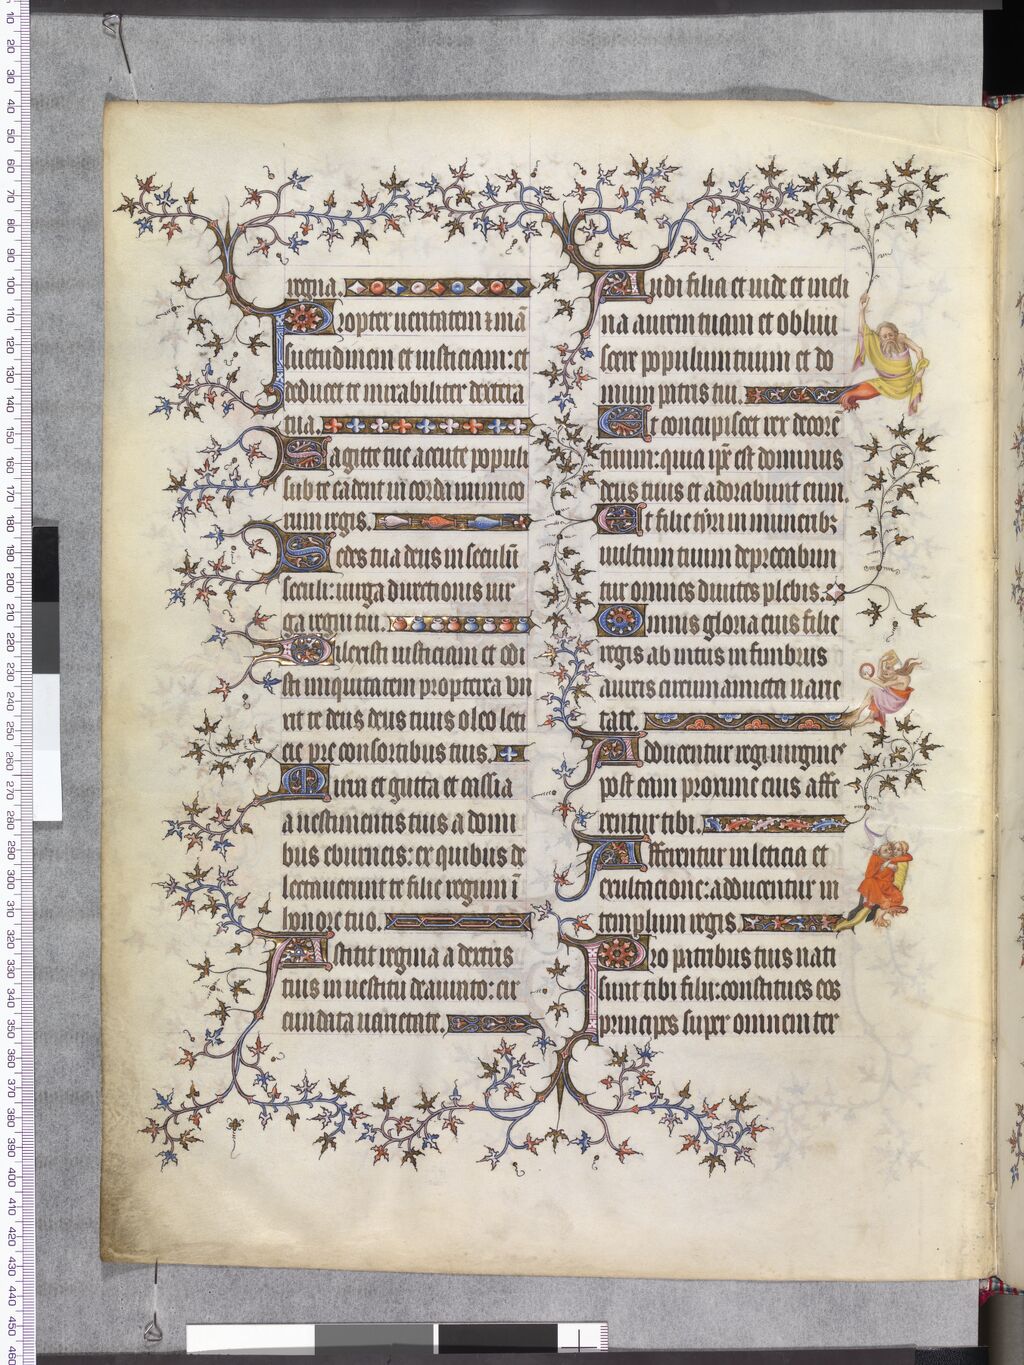 regna.
Propter ueritatem ⁊ mā
suetudinem et iusticiam: et
deducet te mirabiliter dextera
tua.
Sagitte tue acute populi
sub te cadent in corda inimico
rum regis.
Sedes tua deus in seculū
seculi: uirga directionis uir
ga regni tui.
Dilexisti iusticiam et odi
sti iniquitatem propterea vn
xit te deus deus tuus oleo leti
cie pre consortibus tuis.
Mirra et gutta et cassia
a uestimentis tuis a domi
bus eburneis: ex quibus de
lectauerunt te filie regum ī
honore tuo.
Astitit regina a dextris
tuis in uestitu deaurato: cir
cundata uarietate.
Audi filia et uide et incli
na aurem tuam et obliui
scere populum tuum et do
mum patris tui.
Et concupiscet rex decorē
tuum: quia ip̄e est dominus
deus tuus et adorabunt eum.
Et filie tyri in munerib;
uultum tuum deprecabun
tur omnes diuites plebis.
Omnis gloria eius filie
regis ab intus in fimbriis
aureis circumamicta uarie
tate.
Adducentur regi uirgines
post eam proxime eius affe
rentur tibi.
Afferentur in leticia et
exultacione: adducentur in
templum regis.
Pro patribus tuis nati
sunt tibi filii: constitues eos
principes super omnem ter
10 20 30 40 50 60 70 80 90 100 110 120 130 140 150 160 170 180 190 200 210 220 230 240 250 260 270 280 290 300 310 320 330 340 350 360 370 380 390 400 410 420 430 440 450 460